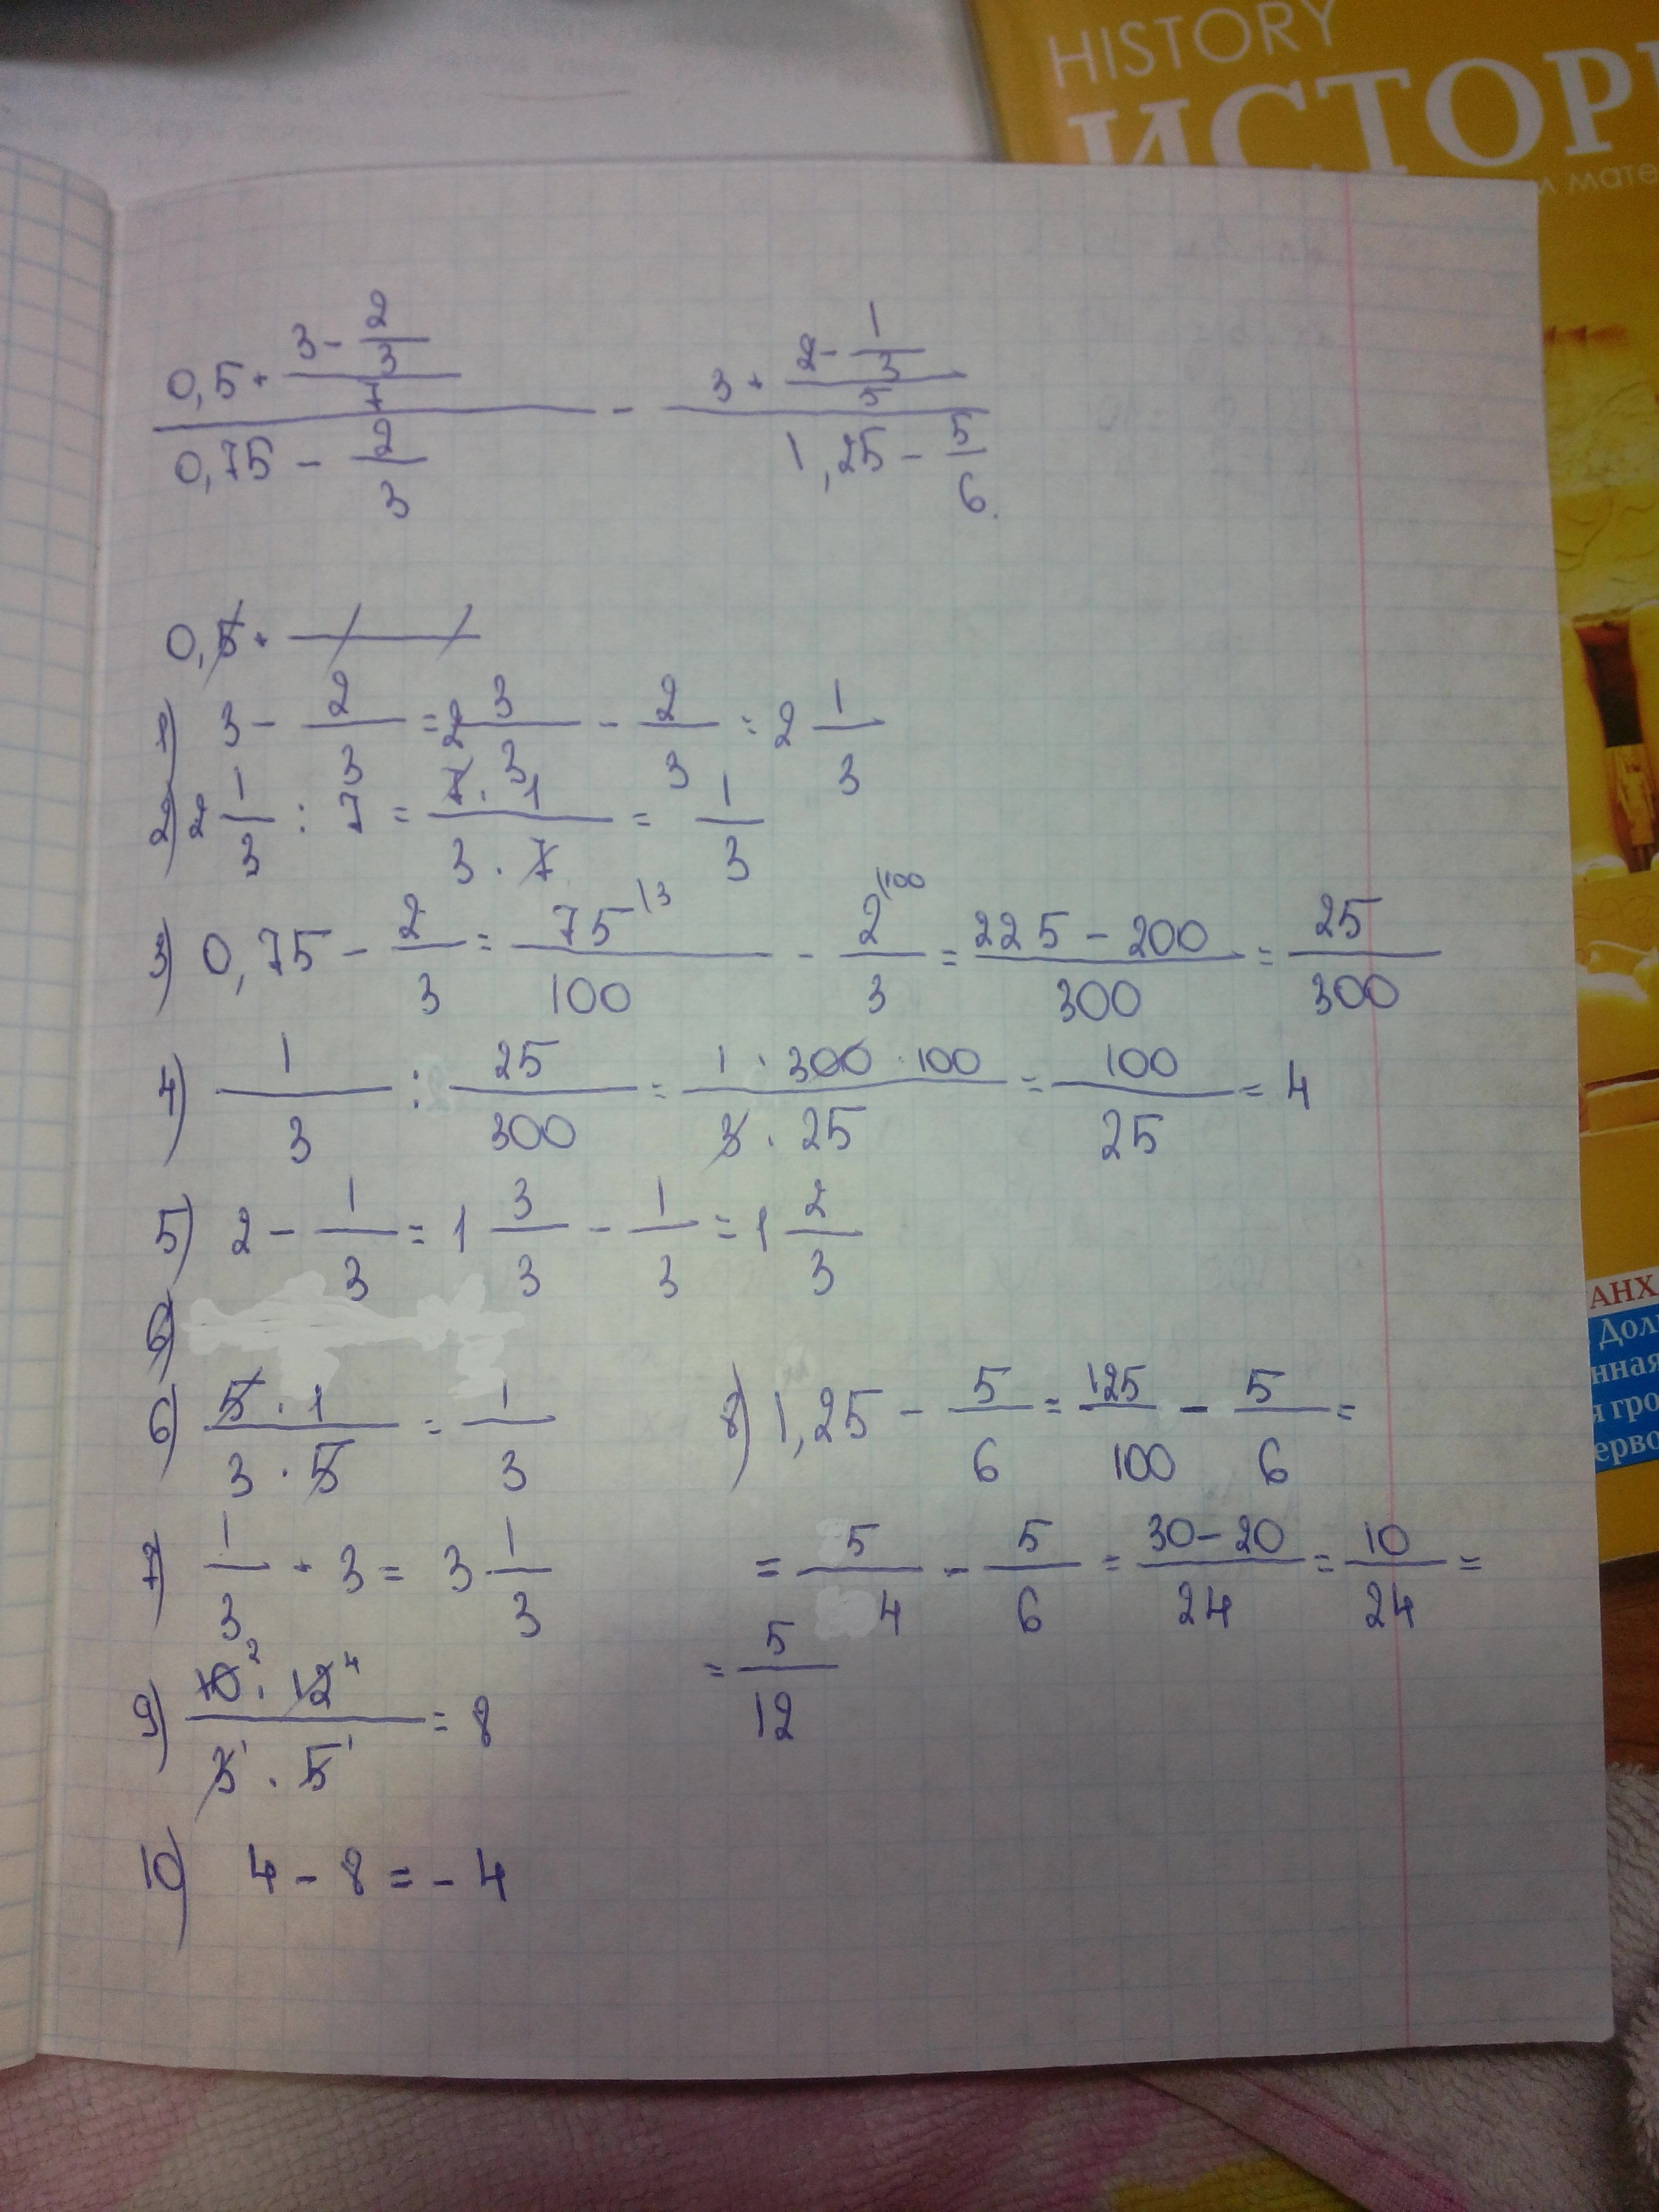 HISTORY
ИСТОР
и мате
0,5 + (3 - 2/3)/7 / 0,75 - 2/3 - 3 + (2 - 1/3)/5 / 1,25 - 5/6.
0,5 +
1) 3 - 2/3 = 2 3/3 - 2/3 = 2 1/3
2) 2 1/3 : 7 = 7 · 1 / 3 · 7 = 1/3
3) 0,75 - 2/3 = 75\3 / 100 - 2\100 / 3 = 225 - 200 / 300 = 25/300
4) 1/3 : 25/300 = 1 · 300 · 100 / 3 · 25 = 100/25 = 4
5) 2 - 1/3 = 1 3/3 - 1/3 = 1 2/3
6)
6) 5 · 1 / 3 · 5 = 1/3
7) 1/3 + 3 = 3 1/3
8) 1,25 - 5/6 = 125/100 - 5/6 =
= 5/4 - 5/6 = 30 - 20 / 24 = 10/24 =
= 5/12
9) 10 2 · 12 4 / 3 1 · 5 1 = 8
10) 4 - 8 = - 4
АНХ
Дол
нная
гро
ерво